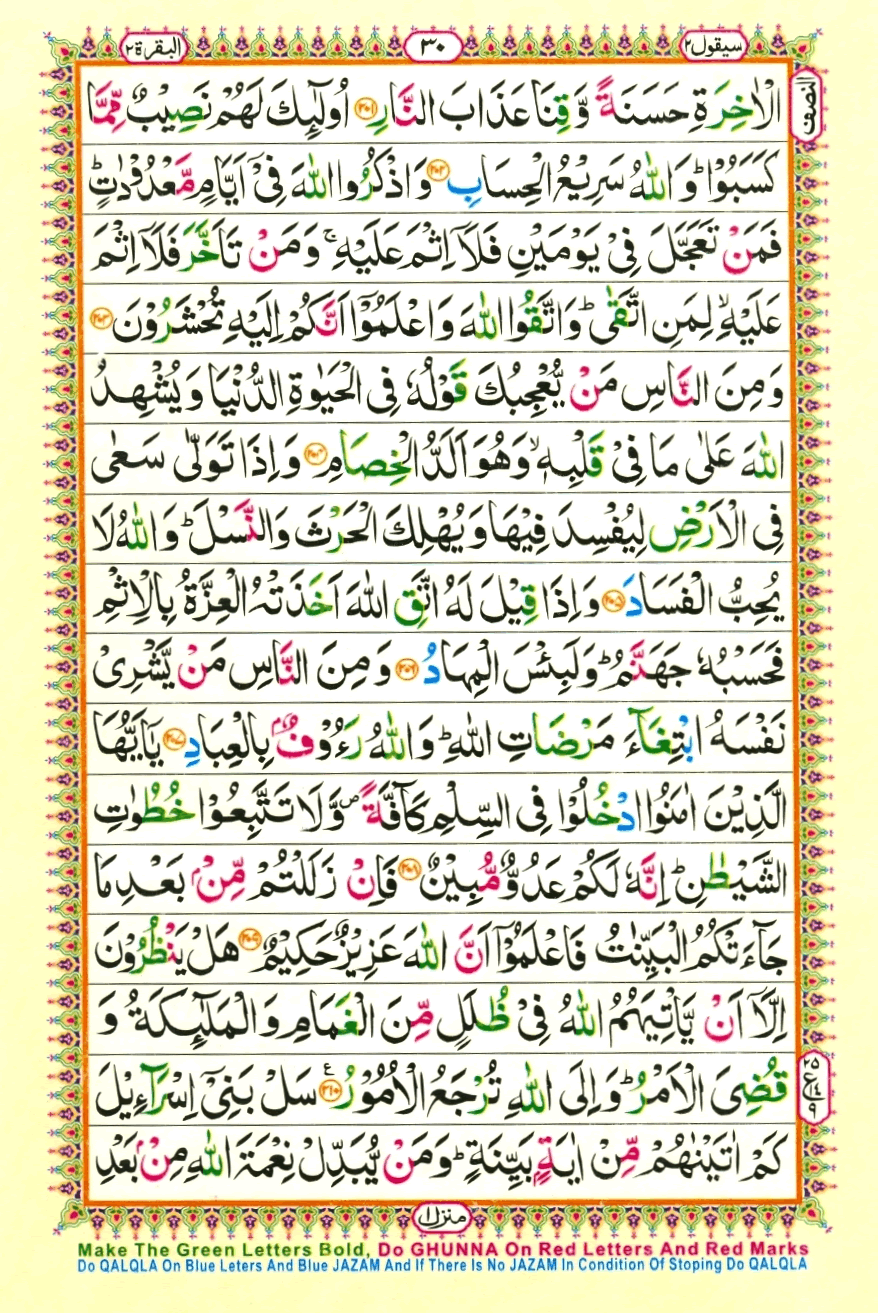 سیقول ۲
۳۰
البقرة ۲
النصف
الْاٰخِرَةِ حَسَنَةً وَّقِنَا عَذَابَ النَّارِ ﴿۲۰۱﴾ اُولٰٓئِكَ لَهُمْ نَصِيْبٌ مِّمَّا
كَسَبُوْا ؕ وَاللّٰهُ سَرِيْعُ الْحِسَابِ ﴿۲۰۲﴾ وَاذْكُرُوا اللّٰهَ فِىْٓ اَيَّامٍ مَّعْدُوْدٰتٍ ؕ
فَمَنْ تَعَجَّلَ فِىْ يَوْمَيْنِ فَلَاۤ اِثْمَ عَلَيْهِ ۚ وَمَنْ تَاَخَّرَ فَلَاۤ اِثْمَ
عَلَيْهِ ۙ لِمَنِ اتَّقٰى ؕ وَاتَّقُوا اللّٰهَ وَاعْلَمُوْۤا اَنَّكُمْ اِلَيْهِ تُحْشَرُوْنَ ﴿۲۰۳﴾
وَمِنَ النَّاسِ مَنْ يُّعْجِبُكَ قَوْلُهٗ فِى الْحَيٰوةِ الدُّنْيَا وَيُشْهِدُ
اللّٰهَ عَلٰى مَا فِىْ قَلْبِهٖ ۙ وَهُوَ اَلَدُّ الْخِصَامِ ﴿۲۰۴﴾ وَاِذَا تَوَلّٰى سَعٰى
فِى الْاَرْضِ لِيُفْسِدَ فِيْهَا وَيُهْلِكَ الْحَرْثَ وَالنَّسْلَ ؕ وَاللّٰهُ لَا
يُحِبُّ الْفَسَادَ ﴿۲۰۵﴾ وَاِذَا قِيْلَ لَهُ اتَّقِ اللّٰهَ اَخَذَتْهُ الْعِزَّةُ بِالْاِثْمِ
فَحَسْبُهٗ جَهَنَّمُ ؕ وَلَبِئْسَ الْمِهَادُ ﴿۲۰۶﴾ وَمِنَ النَّاسِ مَنْ يَّشْرِىْ
نَفْسَهُ ابْتِغَآءَ مَرْضَاتِ اللّٰهِ ؕ وَاللّٰهُ رَءُوْفٌۢ بِالْعِبَادِ ﴿۲۰۷﴾ يٰٓاَيُّهَا
الَّذِيْنَ اٰمَنُوا ادْخُلُوْا فِى السِّلْمِ كَآفَّةً ۪ وَّلَا تَتَّبِعُوْا خُطُوٰتِ
الشَّيْطٰنِ ؕ اِنَّهٗ لَكُمْ عَدُوٌّ مُّبِيْنٌ ﴿۲۰۸﴾ فَاِنْ زَلَلْتُمْ مِّنْۢ بَعْدِ مَا
جَآءَتْكُمُ الْبَيِّنٰتُ فَاعْلَمُوْۤا اَنَّ اللّٰهَ عَزِيْزٌ حَكِيْمٌ ﴿۲۰۹﴾ هَلْ يَنْظُرُوْنَ
اِلَّاۤ اَنْ يَّاْتِيَهُمُ اللّٰهُ فِىْ ظُلَلٍ مِّنَ الْغَمَامِ وَالْمَلٰٓئِكَةُ وَ
قُضِىَ الْاَمْرُ ؕ وَاِلَى اللّٰهِ تُرْجَعُ الْاُمُوْرُ ﴿۲۱۰﴾ ع سَلْ بَنِىْٓ اِسْرَآءِيْلَ
۲۵ ع ۱۴ ۹
كَمْ اٰتَيْنٰهُمْ مِّنْ اٰيَةٍۢ بَيِّنَةٍ ؕ وَمَنْ يُّبَدِّلْ نِعْمَةَ اللّٰهِ مِنْۢ بَعْدِ
منزل ۱
Make The Green Letters Bold, Do GHUNNA On Red Letters And Red Marks
Do QALQLA On Blue Leters And Blue JAZAM And If There Is No JAZAM In Condition Of Stoping Do QALQLA